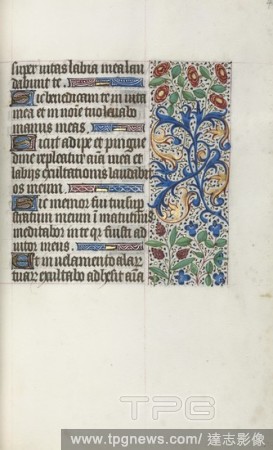 super vitas labia mea lau
dabunt te.
Sic benedicam te in vita
mea et in noie tuo levabo
manus meas.
Sicut adipe et pingue
dine repleatur aia mea et
labijs exultationis laudabit
os meum.
Sic memor fui tui sup
stratum meum i matutinis
meditabor in te qr fuisti ad
iutor meus.
Et in velamento alar
tuar exultabo adhesit aia
TPG
www.tpgnews.com/達志影像